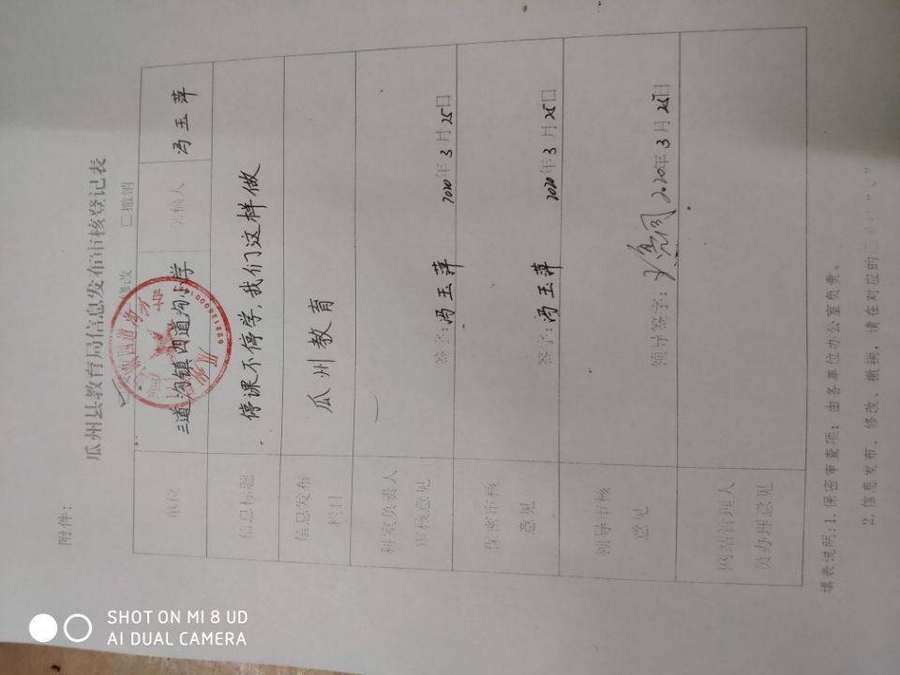 附件:
瓜州县教育局信息发布审核登记表
修改 □撤销
单位 三道沟镇四道沟小学 人 冯玉萍
信息标题 停课不停学,我们这样做
信息发布栏目 瓜州教育
科室负责人审核意见 签字:冯玉萍 2020年3月25日
保密审核意见 签字:冯玉萍 2020年3月25日
领导审核意见 领导签字: 2020年3月25日
网站管理人员办理意见
填表说明:1.保密审查项,由各单位办公室负责。
2.信息发布、修改、撤销,请在对应的
SHOT ON MI 8 UD
AI DUAL CAMERA